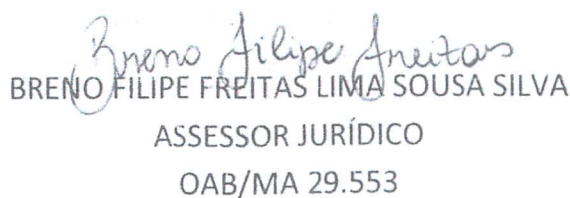 Breno Filipe Freitas
BRENO FILIPE FREITAS LIMA SOUSA SILVA
ASSESSOR JURÍDICO
OAB/MA 29.553